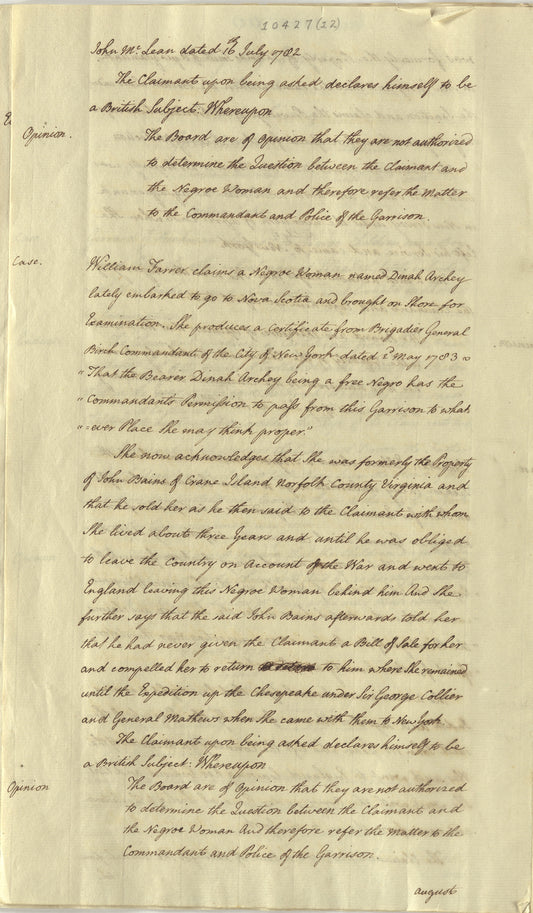 10427(12)
John Mc. Lean dated 16th July 1782
The Claimant upon being asked declares himself to be
a British Subject. Whereupon
Opinion.
The Board are of Opinion that they are not authorized
to determine the Question between the Claimant and
the Negroe Woman and therefore refer the Matter
to the Commandant and Police of the Garrison.
Case.
William Farrer claims a Negroe Woman named Dinah Archey
lately embarked to go to Nova Scotia and brought on Shore for
Examination. She produces a Certificate from Brigadier General
Birch Commandant of the City of New York dated 2d May 1783
"That the Bearer Dinah Archey being a free Negro has the
"Commandants Permission to pass from this Garrison to what
"=ever Place She may think proper."
She now acknowledges that She was formerly the Property
of John Bains of Crane Island Norfolk County Virginia and
that he sold her as he then said to the Claimant with whom
She lived about three Years and until he was obliged
to leave the Country on Account of the War and went to
England leaving this Negroe Woman behind him And She
further says that the said John Bains afterwards told her
that he had never given the Claimant a Bill of Sale for her
and compelled her to return to him where She remained
until the Expedition up the Chesepeake under Sir George Collier
and General Mathews when She came with them to New York.
The Claimant upon being asked declares himself to be
a British Subject. Whereupon
Opinion
The Board are of Opinion that they are not authorized
to determine the Question between the Claimant and
the Negroe Woman And therefore refer the Matter to the
Commandant and Police of the Garrison.
august